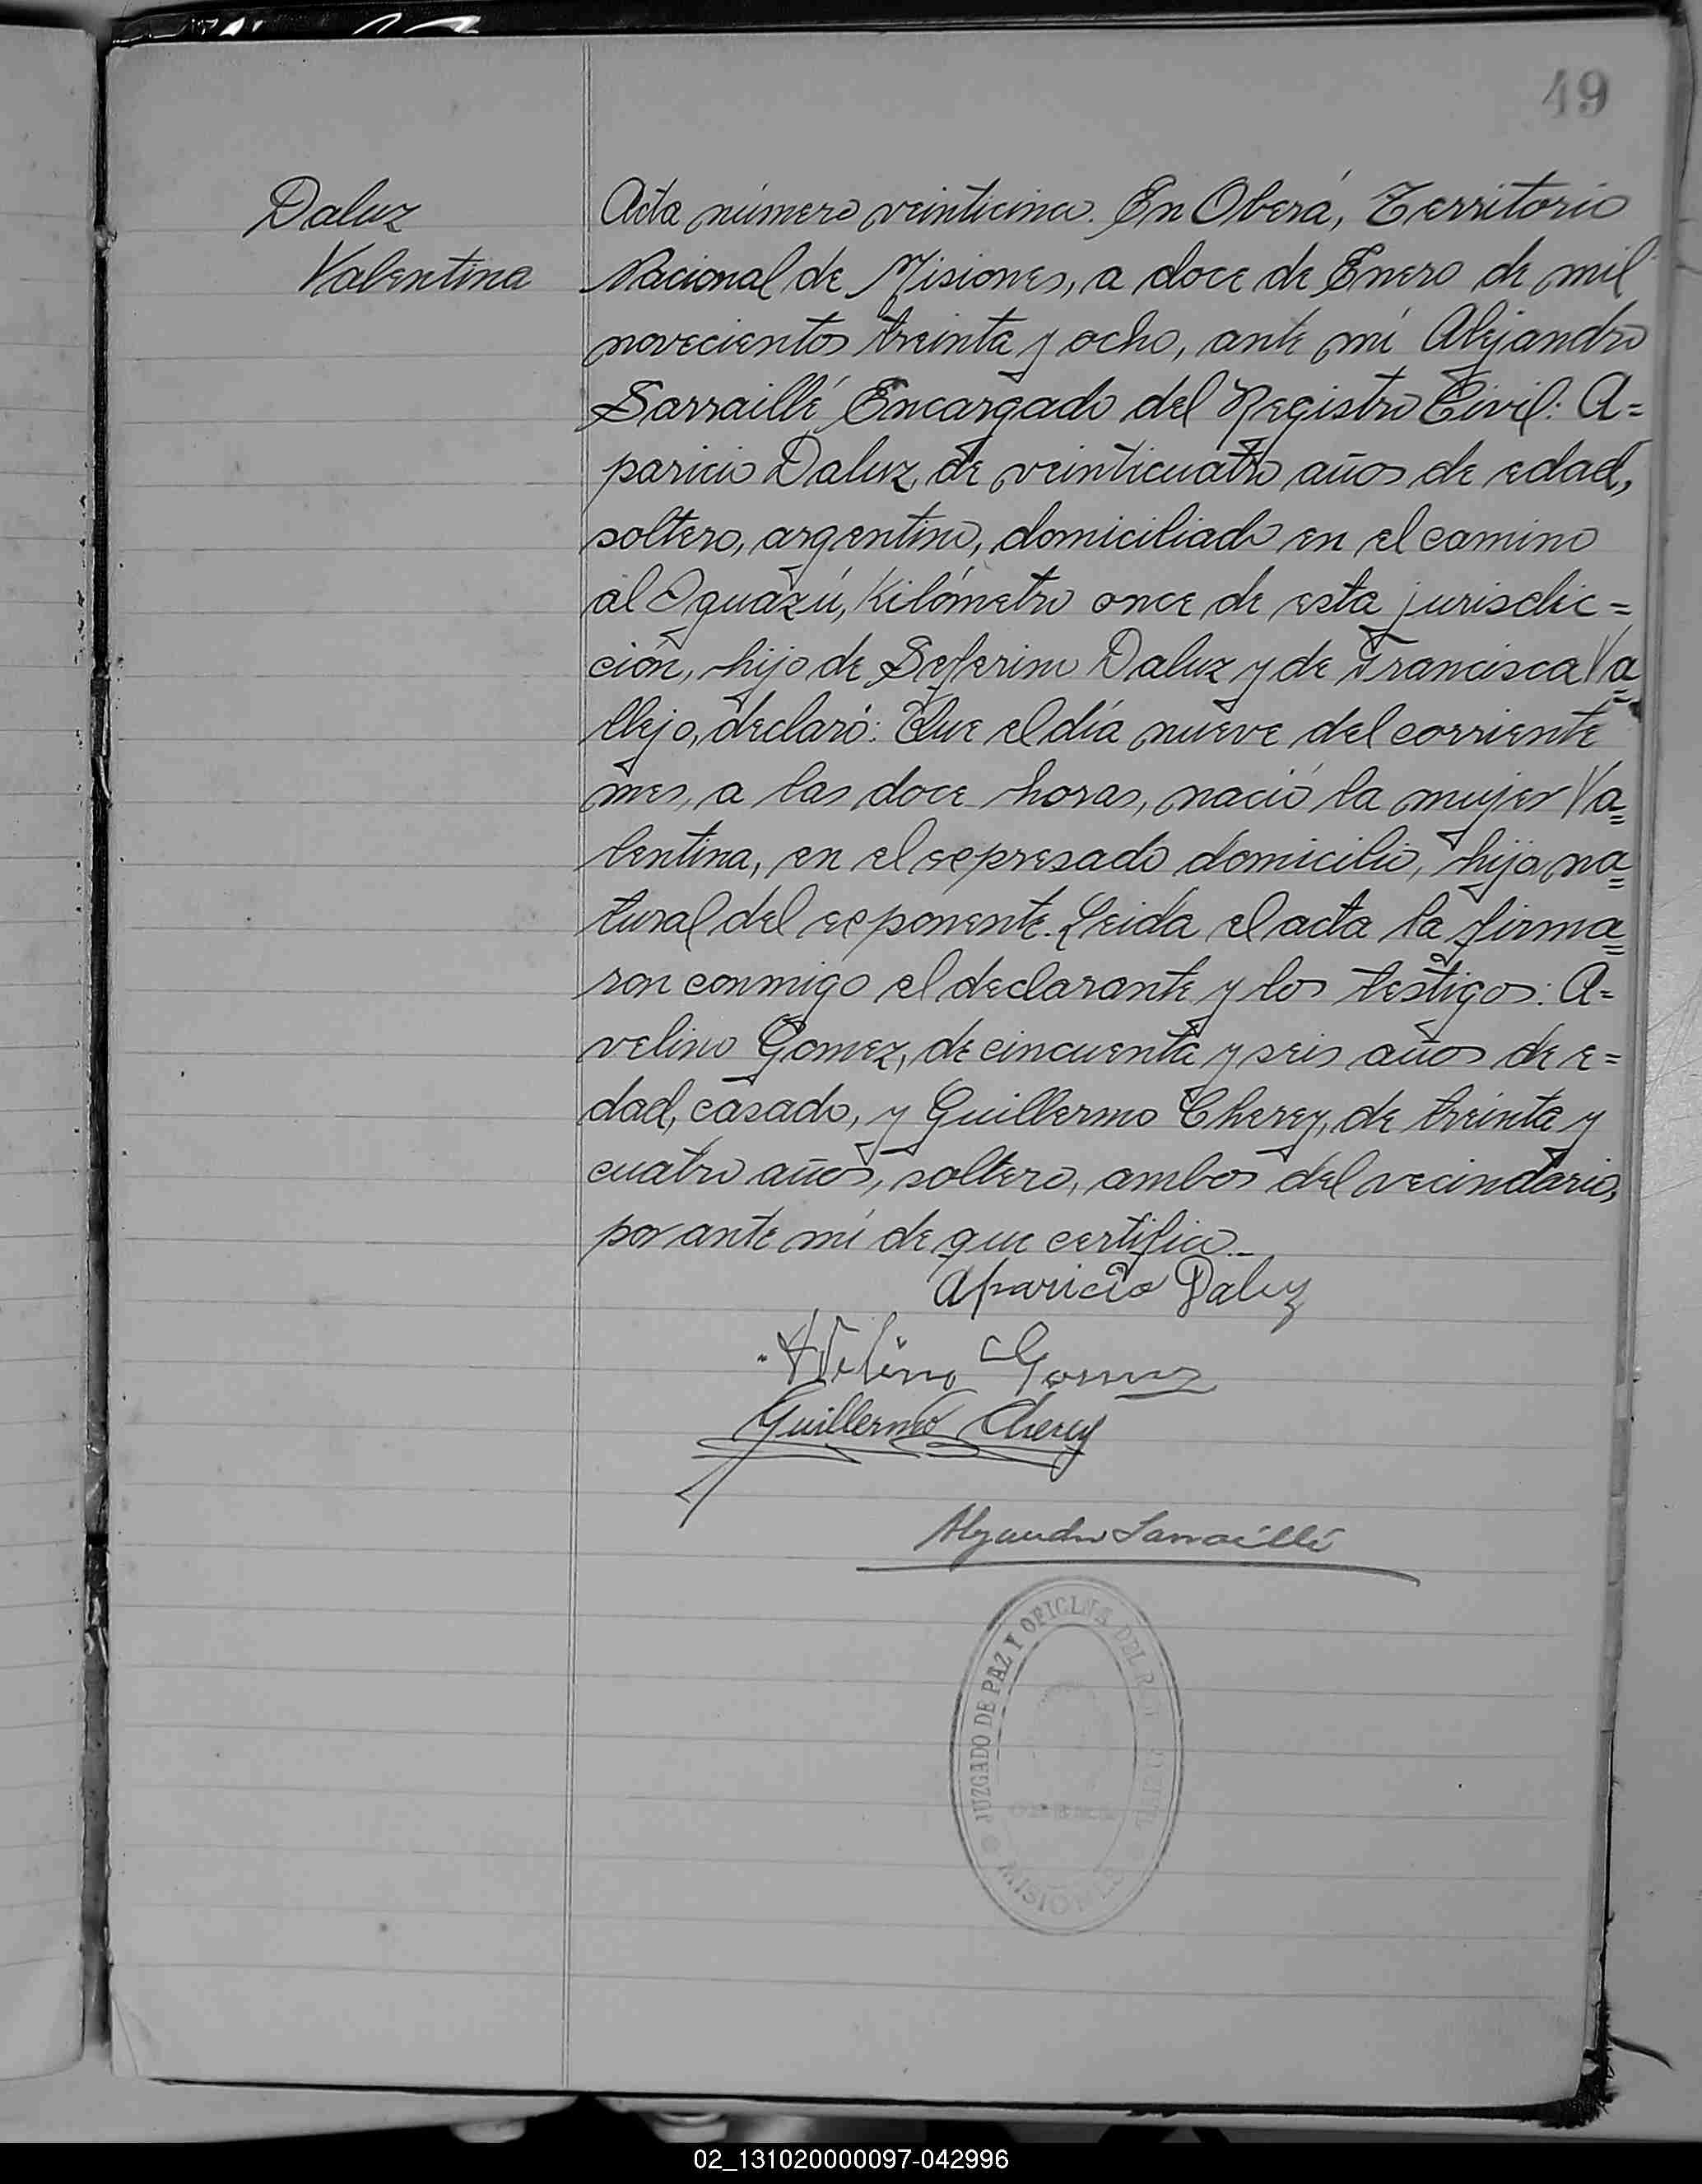 49
Daluz
Valentina
Acta número veinticinco. En Oberá, Territorio
Nacional de Misiones, a doce de Enero de mil
novecientos treinta y ocho, ante mí Alejandro
Sarraillé Encargado del Registro Civil: A=
paricio Daluz, de veinticuatro años de edad,
soltero, argentino, domiciliado en el camino
al Iguazú, Kilómetro once de esta jurisdic=
ción, hijo de Seferino Daluz y de Francisca Va=
llejo, declaró: Que el día nueve del corriente
mes, a las doce horas, nació la mujer Va=
lentina, en el expresado domicilio, hija na=
tural del exponente. Leida el acta la firma=
ron conmigo el declarante y los testigos: A=
velino Gomez, de cincuenta y seis años de e=
dad, casado, y Guillermo Cherey, de treinta y
cuatro años, soltero, ambos del vecindario,
por ante mí de que certifico.-
Aparicio Daluz
Avelino Gomez
Guillermo Cherey
Alejandro Sarraillé
JUZGADO DE PAZ Y OFICINA DEL REG. CIVIL
MISIONES
02_131020000097-042996